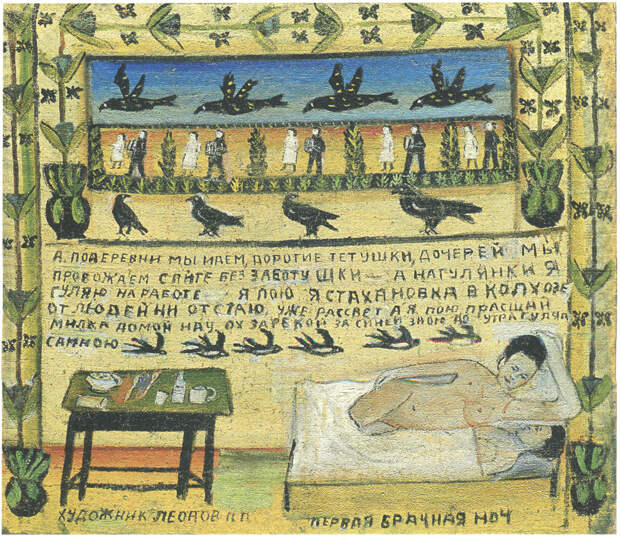 А. ПО ДЕРЕВНИ МЫ ИДЕМ, ДОРОГИЕ ТЕТУШКИ, ДОЧЕРЕЙ МЫ
ПРОВОЖАЕМ СПИТЕ БЕЗ ЗАБОТУШКИ — А НАГУЛЯНКИ Я
ГУЛЯЮ НА РАБОТЕ Я ПОЮ Я СТАХАНОВКА В КОЛХОЗЕ
ОТ ЛЮДЕЙ НИ ОТСТАЮ. УЖЕ РАССВЕТ А Я ПОЮ ПРАСЩАЙ
МИЛКА ДОМОЙ ИДУ. ОХ ЗА РЕКОЙ ЗА СИНЕЙ ЗНОЮ ДО УТРА ГУЛЧА
САМНОЮ
ХУДОЖНИК ЛЕОНОВ П П
ПЕРВАЯ БРАЧНАЯ НОЧ